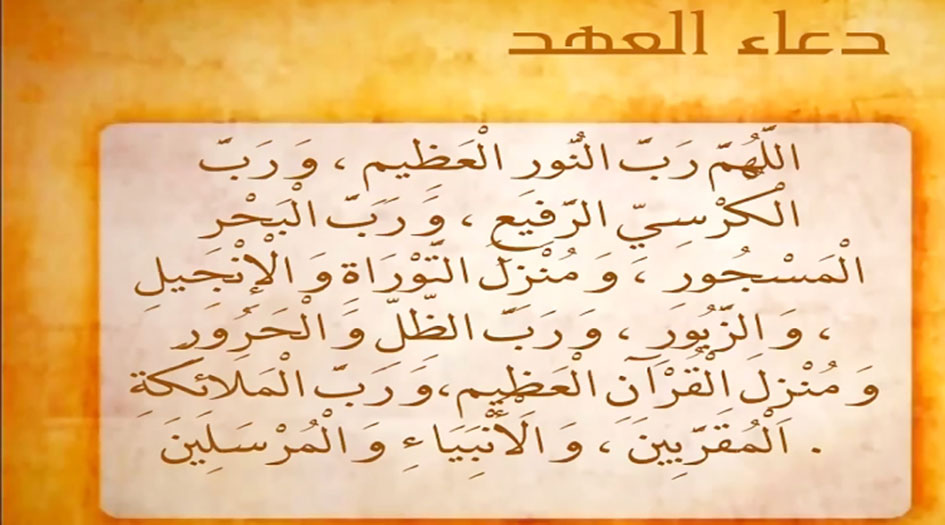 دعاء العهد
اللَّهُمَّ رَبَّ النُّورِ الْعَظِيمِ ، وَ رَبَّ
الْكُرْسِيِّ الرَّفِيعِ ، وَ رَبَّ الْبَحْرِ
الْمَسْجُورِ ، وَ مُنْزِلَ التَّوْرَاةِ وَ الْإِنْجِيلِ
، وَ الزَّبُورِ ، وَ رَبَّ الظِّلِّ وَ الْحَرُورِ
وَ مُنْزِلَ الْقُرْآنِ الْعَظِيمِ، وَ رَبَّ الْمَلائِكَةِ
الْمُقَرَّبِينَ ، وَ الْأَنْبِيَاءِ وَ الْمُرْسَلِينَ .